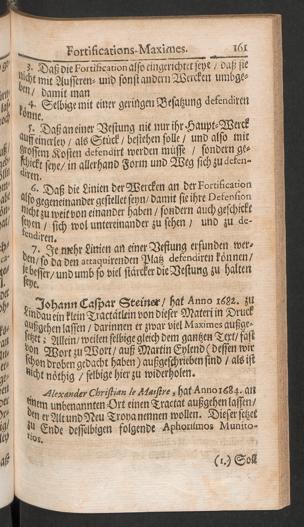 Fortifications-Maximes. 161
3. Daß die Fortification also eingerichtet seye / daß sie
nicht mit Ausseren- und sonst andern Wercken umbge-
ben / damit man
4. Selbige mit einer geringen Besatzung defendiren
könne.
5. Daß an einer Vestung nit nur ihr Haupt-Werck
auff einerley / als Stück / bestehen solle / und also mit
grossem Kosten defendirt werden müsse / sondern ge-
schickt seye / in allerhand Form und Weg sich zu defen-
diren.
6. Daß die Linien der Wercken an der Fortification
also gegeneinander gestellet seyn / damit sie ihre Defension
nicht zu weit von einander haben / sondern auch geschickt
seyen / sich wol untereinander zu sehen / und zu de-
fendiren.
7. Je mehr Linien an einer Vestung erfunden wer-
den / so da den attaquirenden Platz defendiren können /
je besser / und umb so viel stärcker die Vestung zu halten
seye.
Johann Caspar Steiner / hat Anno 1682. zu
Lindau ein klein Tractätlein von dieser Materi in Druck
außgehen lassen / darinnen er zwar viel Maximes außge-
setzet ; Allein / weilen selbige gleich dem gantzen Text / fast
von Wort zu Wort / auß Martin Eylend (dessen wir
schon droben gedacht haben) außgeschrieben sind / als ist
nicht nöthig / selbige hier zu widerholen.
Alexander Christian le Maistre, hat Anno 1684. an
einem unbenannten Ort einen Tractat außgehen lassen /
den er Alt und Neu Trova nennen wollen. Dieser setzet
zu Ende desselbigen folgende Aphorismos Munito-
rios.
(1.) Soll